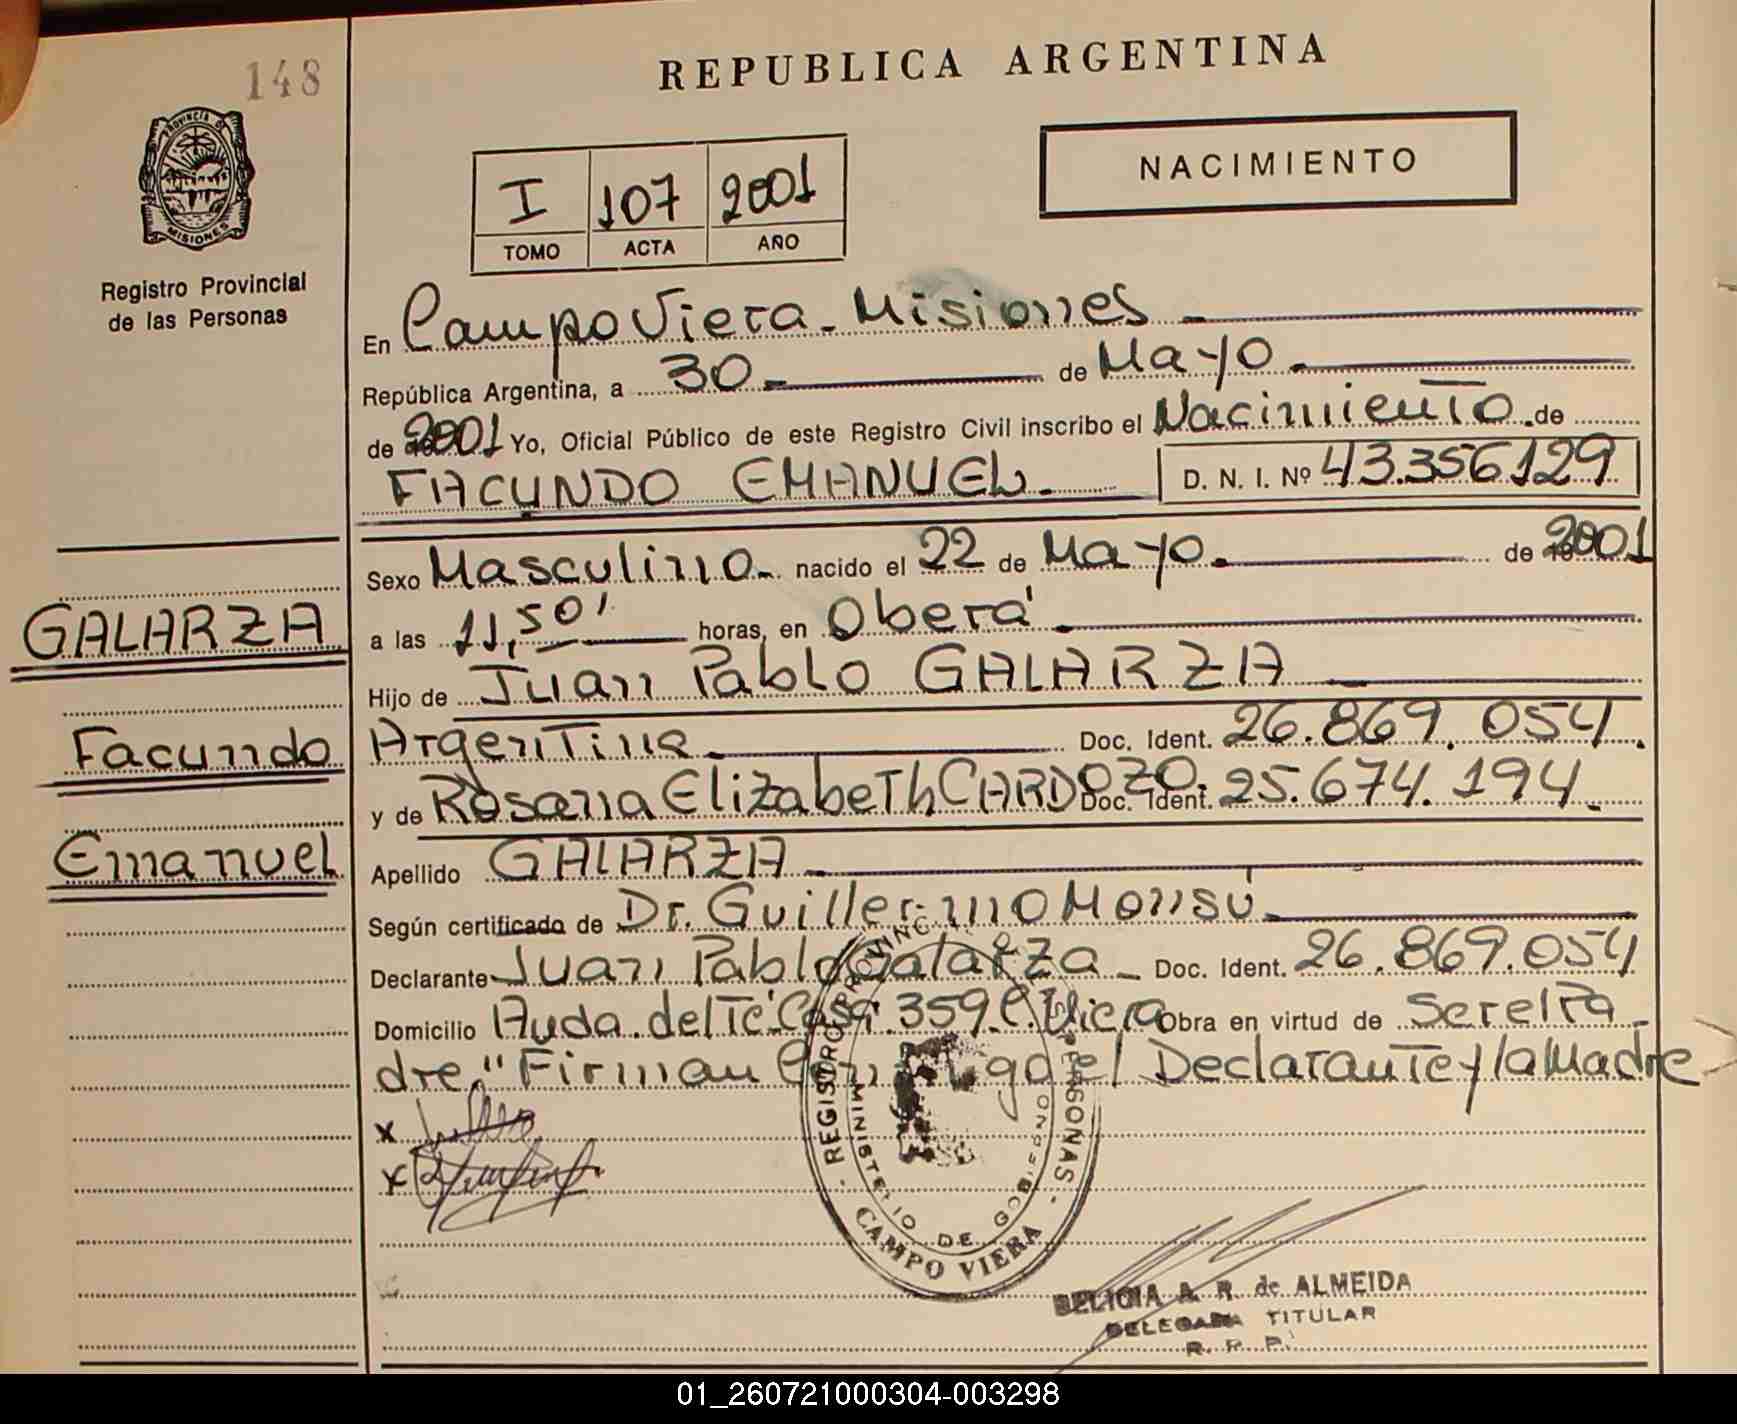 148
REPUBLICA ARGENTINA
PROVINCIA DE MISIONES
Registro Provincial
de las Personas
I 107 2001
TOMO ACTA AÑO
NACIMIENTO
En Campo Viera - Misiones
República Argentina, a 30 de Mayo
de 2001 Yo, Oficial Público de este Registro Civil inscribo el Nacimiento de
FACUNDO EMANUEL D. N. I. Nº 43.356.129
Sexo Masculino nacido el 22 de Mayo de 2001
a las 11,50' horas, en Oberá
Hijo de Juan Pablo GALARZA
Argentina Doc. Ident. 26.869.054
y de Rosana Elizabeth CARDOZO Doc. Ident. 25.674.194
Apellido GALARZA
Según certificado de Dr. Guillermo Monsú
Declarante Juan Pablo Galarza Doc. Ident. 26.869.054
Domicilio Avda. del Té Casa 359 C. Viera Obra en virtud de Ser el Pa
dre." Firman el Declarante y la Madre
GALARZA
Facundo
Emanuel
REGISTRO PROVINCIAL PERSONAS
MINISTERIO DE GOBIERNO
CAMPO VIERA
A. R. de ALMEIDA
DELEGADA TITULAR
R. P. P.
01_260721000304-003298